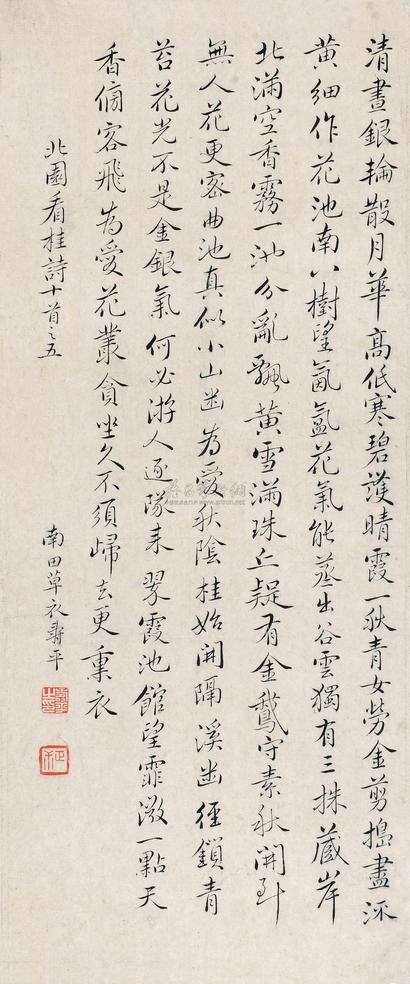 清晝銀輪散月華高低寒碧護晴霞一秋青女勞金剪搗盡沉
黄細作花池南八樹望氤氳花氣能蒸出谷雲獨有三株藏岸
北滿空香霧一池分亂飄黄雪滿珠丘疑有金鵞守素秋開到
無人花更密曲池真似小山幽為愛秋陰桂始開隔溪幽徑鎖青
苔花光不是金銀氣何必游人逐隊來翠霞池館望霏微一點天
香傍客飛為愛花叢貪坐久不須歸去更熏衣
北園看桂詩十首之五
南田草衣壽平